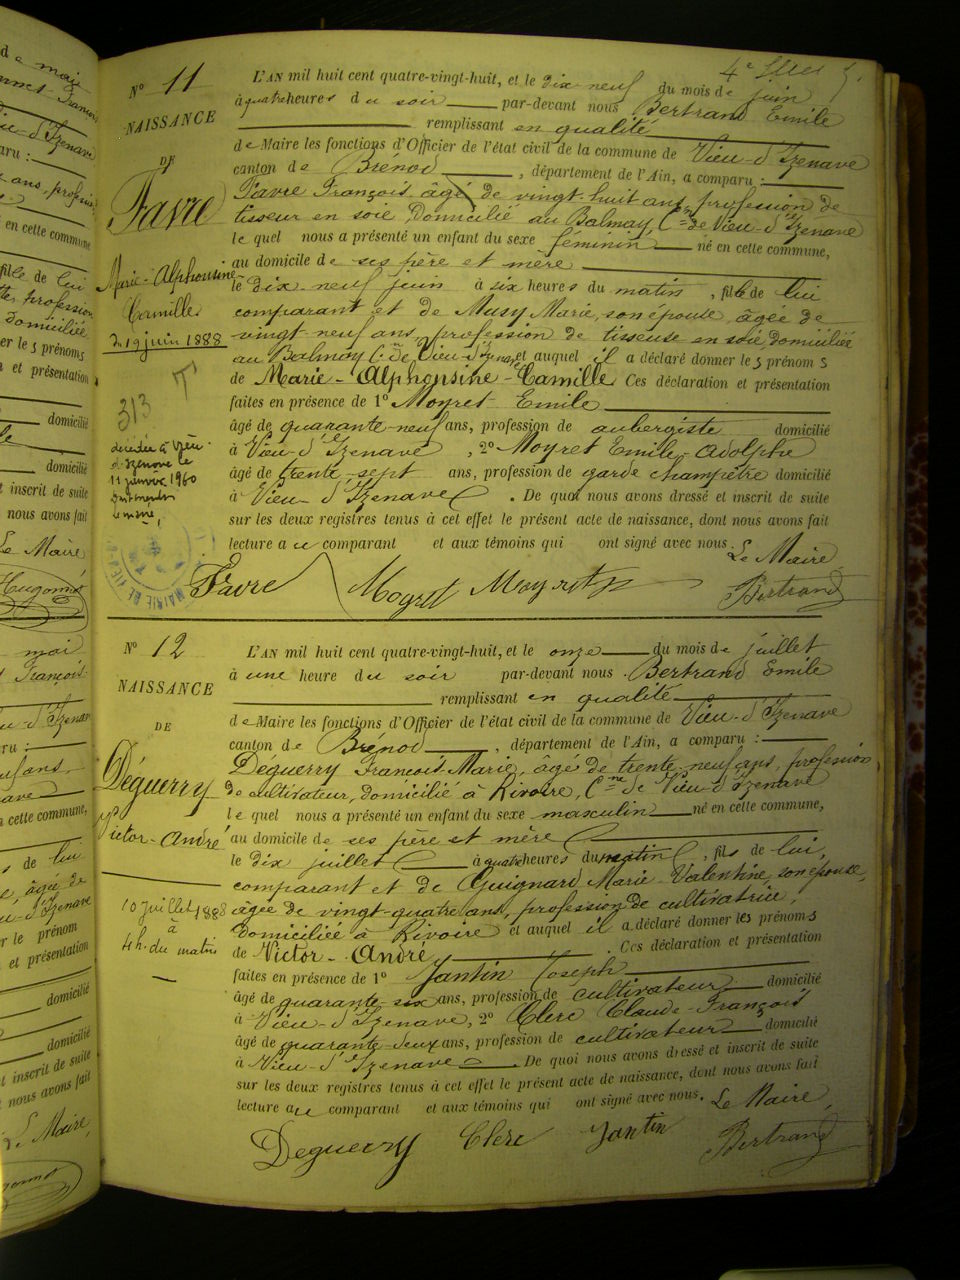 4e
N° 11
NAISSANCE
DE
Favre
Marie-Alphonsine
Camille
du 19 juin 1888
313
T
décédée à Vieu
d'Izenave le
11 janvier 1960
le maire,
L'AN mil huit cent quatre-vingt-huit, et le dix-neuf du mois de juin
à quatre heures du soir par-devant nous Bertrand Emile
remplissant en qualité
de Maire les fonctions d'Officier de l'état civil de la commune de Vieu-d'Izenave
canton de Brénod, département de l'Ain, a comparu :
Favre François âgé de vingt-huit ans, profession de
tisseur en soie, domicilié au Balmay, Cne de Vieu-d'Izenave
lequel nous a présenté un enfant du sexe féminin né en cette commune,
au domicile de ses père et mère
le dix-neuf juin à six heures du matin, fille de lui
comparant et de Musy Marie, son épouse, âgée de
vingt-neuf ans, profession de tisseuse en soie, domiciliée
au Balmay Cne de Vieu-d'Izenave et auquel il a déclaré donner les prénoms
de Marie-Alphonsine-Camille Ces déclaration et présentation
faites en présence de 1° Moyret Emile
âgé de quarante-neuf ans, profession de aubergiste domicilié
à Vieu-d'Izenave, 2° Moyret Emile-Adolphe
âgé de trente-sept ans, profession de garde champêtre domicilié
à Vieu-d'Izenave. De quoi nous avons dressé et inscrit de suite
sur les deux registres tenus à cet effet le présent acte de naissance, dont nous avons fait
lecture au comparant et aux témoins qui ont signé avec nous. Le Maire,
Favre Moyret Moyret Bertrand
N° 12
NAISSANCE
DE
Déguerry
Victor-André
10 juillet 1888
à
4 h. du matin
L'AN mil huit cent quatre-vingt-huit, et le onze du mois de juillet
à une heure du soir par-devant nous Bertrand Emile
remplissant en qualité
de Maire les fonctions d'Officier de l'état civil de la commune de Vieu-d'Izenave
canton de Brénod, département de l'Ain, a comparu :
Déguerry François-Marie, âgé de trente-neuf ans, profession
de cultivateur, domicilié à Rivoire, Cne de Vieu-d'Izenave
lequel nous a présenté un enfant du sexe masculin né en cette commune,
au domicile de ses père et mère
le dix juillet à quatre heures du matin, fils de lui,
comparant et de Guignard Marie-Valentine, son épouse,
âgée de vingt-quatre ans, profession de cultivatrice,
domiciliée à Rivoire et auquel il a déclaré donner les prénoms
de Victor-André. Ces déclaration et présentation
faites en présence de 1° Jantin Joseph
âgé de quarante-six ans, profession de cultivateur domicilié
à Vieu-d'Izenave, 2° Clerc Claude-François
âgé de quarante-deux ans, profession de cultivateur domicilié
à Vieu-d'Izenave. De quoi nous avons dressé et inscrit de suite
sur les deux registres tenus à cet effet le présent acte de naissance, dont nous avons fait
lecture au comparant et aux témoins qui ont signé avec nous. Le Maire,
Deguerry Clerc Jantin Bertrand